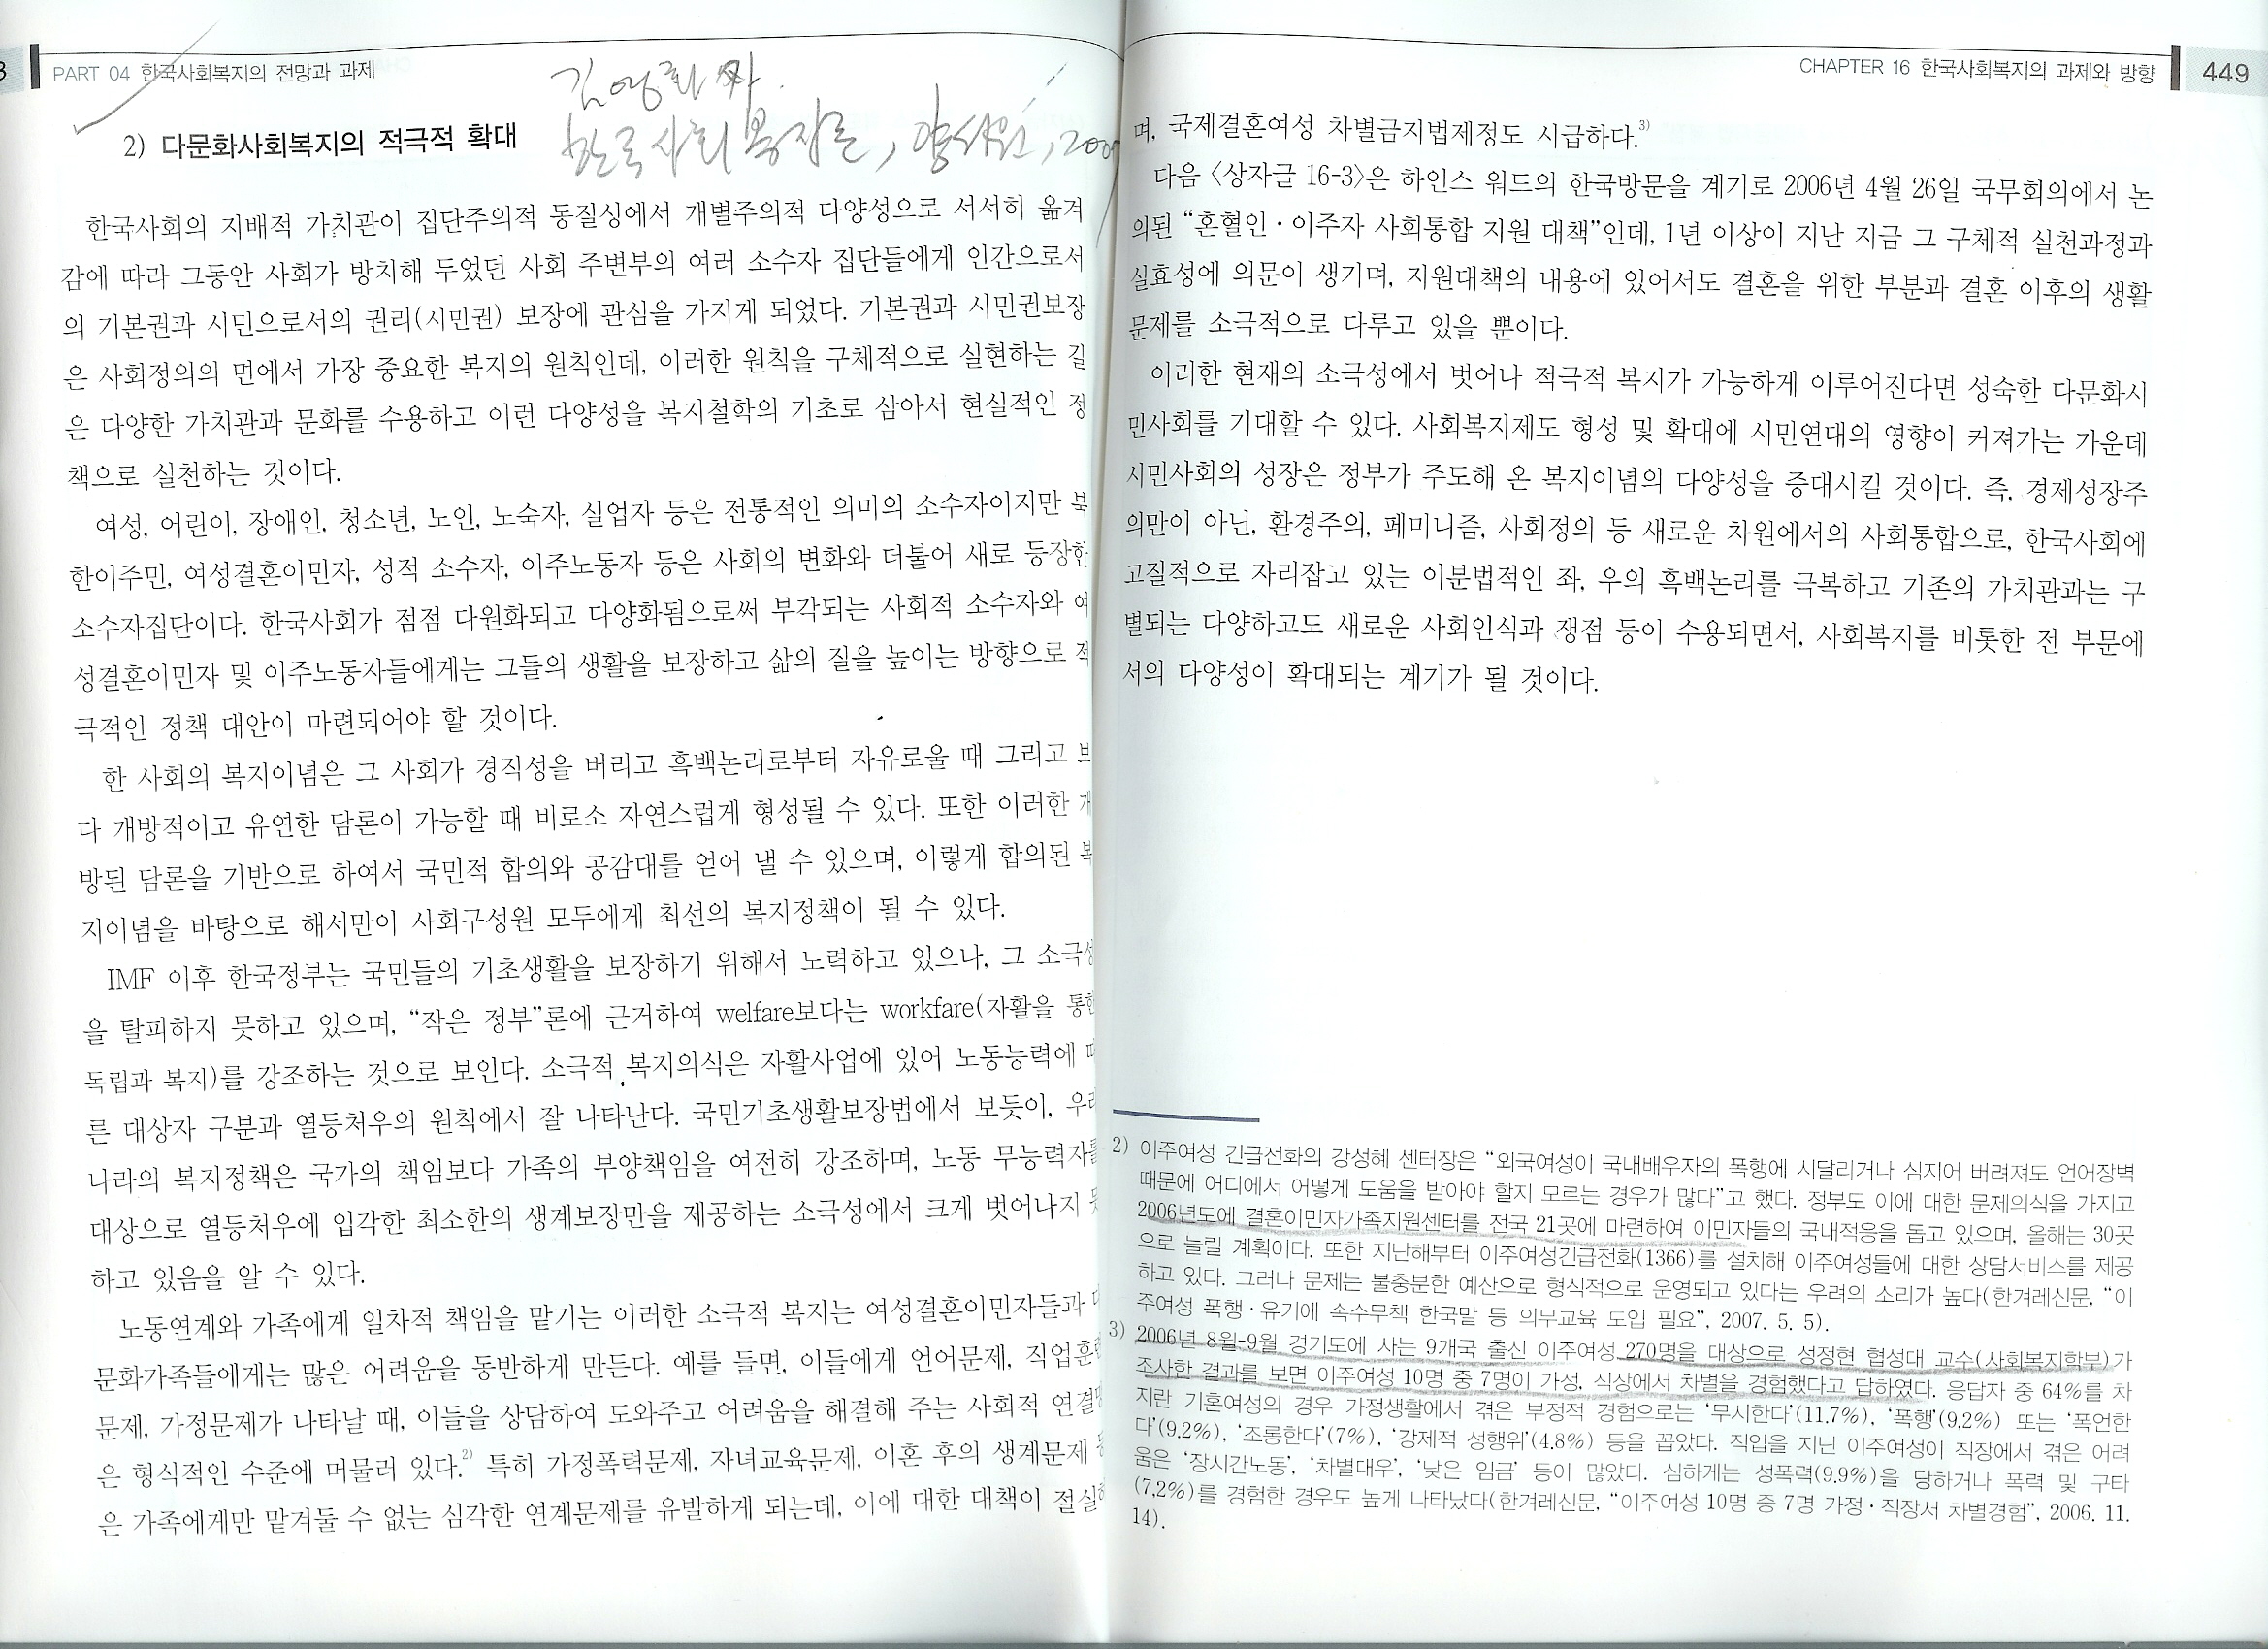 PART 04 한국사회복지의 전망과 과제
김영화 저
한국사회복지론, 양서원, 200
2) 다문화사회복지의 적극적 확대
한국사회의 지배적 가치관이 집단주의적 동질성에서 개별주의적 다양성으로 서서히 옮겨
감에 따라 그동안 사회가 방치해 두었던 사회 주변부의 여러 소수자 집단들에게 인간으로서
의 기본권과 시민으로서의 권리(시민권) 보장에 관심을 가지게 되었다. 기본권과 시민권보장
은 사회정의의 면에서 가장 중요한 복지의 원칙인데, 이러한 원칙을 구체적으로 실현하는 길
은 다양한 가치관과 문화를 수용하고 이런 다양성을 복지철학의 기초로 삼아서 현실적인 정
책으로 실천하는 것이다.
여성, 어린이, 장애인, 청소년, 노인, 노숙자, 실업자 등은 전통적인 의미의 소수자이지만 북
한이주민, 여성결혼이민자, 성적 소수자, 이주노동자 등은 사회의 변화와 더불어 새로 등장한
소수자집단이다. 한국사회가 점점 다원화되고 다양화됨으로써 부각되는 사회적 소수자와 여
성결혼이민자 및 이주노동자들에게는 그들의 생활을 보장하고 삶의 질을 높이는 방향으로 적
극적인 정책 대안이 마련되어야 할 것이다.
한 사회의 복지이념은 그 사회가 경직성을 버리고 흑백논리로부터 자유로울 때 그리고 보
다 개방적이고 유연한 담론이 가능할 때 비로소 자연스럽게 형성될 수 있다. 또한 이러한 개
방된 담론을 기반으로 하여서 국민적 합의와 공감대를 얻어 낼 수 있으며, 이렇게 합의된 복
지이념을 바탕으로 해서만이 사회구성원 모두에게 최선의 복지정책이 될 수 있다.
IMF 이후 한국정부는 국민들의 기초생활을 보장하기 위해서 노력하고 있으나, 그 소극성
을 탈피하지 못하고 있으며, “작은 정부”론에 근거하여 welfare보다는 workfare(자활을 통한
독립과 복지)를 강조하는 것으로 보인다. 소극적 복지의식은 자활사업에 있어 노동능력에 따
른 대상자 구분과 열등처우의 원칙에서 잘 나타난다. 국민기초생활보장법에서 보듯이, 우리
나라의 복지정책은 국가의 책임보다 가족의 부양책임을 여전히 강조하며, 노동 무능력자를
대상으로 열등처우에 입각한 최소한의 생계보장만을 제공하는 소극성에서 크게 벗어나지 못
하고 있음을 알 수 있다.
노동연계와 가족에게 일차적 책임을 맡기는 이러한 소극적 복지는 여성결혼이민자들과 다
문화가족들에게는 많은 어려움을 동반하게 만든다. 예를 들면, 이들에게 언어문제, 직업훈련
문제, 가정문제가 나타날 때, 이들을 상담하여 도와주고 어려움을 해결해 주는 사회적 연결망
은 형식적인 수준에 머물러 있다.2) 특히 가정폭력문제, 자녀교육문제, 이혼 후의 생계문제 등
은 가족에게만 맡겨둘 수 없는 심각한 연계문제를 유발하게 되는데, 이에 대한 대책이 절실하
CHAPTER 16 한국사회복지의 과제와 방향 449
며, 국제결혼여성 차별금지법제정도 시급하다.3)
다음 〈상자글 16-3〉은 하인스 워드의 한국방문을 계기로 2006년 4월 26일 국무회의에서 논
의된 “혼혈인·이주자 사회통합 지원 대책”인데, 1년 이상이 지난 지금 그 구체적 실천과정과
실효성에 의문이 생기며, 지원대책의 내용에 있어서도 결혼을 위한 부분과 결혼 이후의 생활
문제를 소극적으로 다루고 있을 뿐이다.
이러한 현재의 소극성에서 벗어나 적극적 복지가 가능하게 이루어진다면 성숙한 다문화시
민사회를 기대할 수 있다. 사회복지제도 형성 및 확대에 시민연대의 영향이 커져가는 가운데
시민사회의 성장은 정부가 주도해 온 복지이념의 다양성을 증대시킬 것이다. 즉, 경제성장주
의만이 아닌, 환경주의, 페미니즘, 사회정의 등 새로운 차원에서의 사회통합으로, 한국사회에
고질적으로 자리잡고 있는 이분법적인 좌, 우의 흑백논리를 극복하고 기존의 가치관과는 구
별되는 다양하고도 새로운 사회인식과 쟁점 등이 수용되면서, 사회복지를 비롯한 전 부문에
서의 다양성이 확대되는 계기가 될 것이다.
2) 이주여성 긴급전화의 강성혜 센터장은 “외국여성이 국내배우자의 폭행에 시달리거나 심지어 버려져도 언어장벽
때문에 어디에서 어떻게 도움을 받아야 할지 모르는 경우가 많다”고 했다. 정부도 이에 대한 문제의식을 가지고
2006년도에 결혼이민자가족지원센터를 전국 21곳에 마련하여 이민자들의 국내적응을 돕고 있으며, 올해는 30곳
으로 늘릴 계획이다. 또한 지난해부터 이주여성긴급전화(1366)를 설치해 이주여성들에 대한 상담서비스를 제공
하고 있다. 그러나 문제는 불충분한 예산으로 형식적으로 운영되고 있다는 우려의 소리가 높다(한겨레신문, “이
주여성 폭행·유기에 속수무책 한국말 등 의무교육 도입 필요”, 2007. 5. 5).
3) 2006년 8월-9월 경기도에 사는 9개국 출신 이주여성 270명을 대상으로 성정현 협성대 교수(사회복지학부)가
조사한 결과를 보면 이주여성 10명 중 7명이 가정, 직장에서 차별을 경험했다고 답하였다. 응답자 중 64%를 차
지란 기혼여성의 경우 가정생활에서 겪은 부정적 경험으로는 ‘무시한다’(11.7%), ‘폭행’(9.2%) 또는 ‘폭언한
다’(9.2%), ‘조롱한다’(7%), ‘강제적 성행위’(4.8%) 등을 꼽았다. 직업을 지닌 이주여성이 직장에서 겪은 어려
움은 ‘장시간노동’, ‘차별대우’, ‘낮은 임금’ 등이 많았다. 심하게는 성폭력(9.9%)을 당하거나 폭력 및 구타
(7.2%)를 경험한 경우도 높게 나타났다(한겨레신문, “이주여성 10명 중 7명 가정·직장서 차별경험”, 2006. 11.
14).